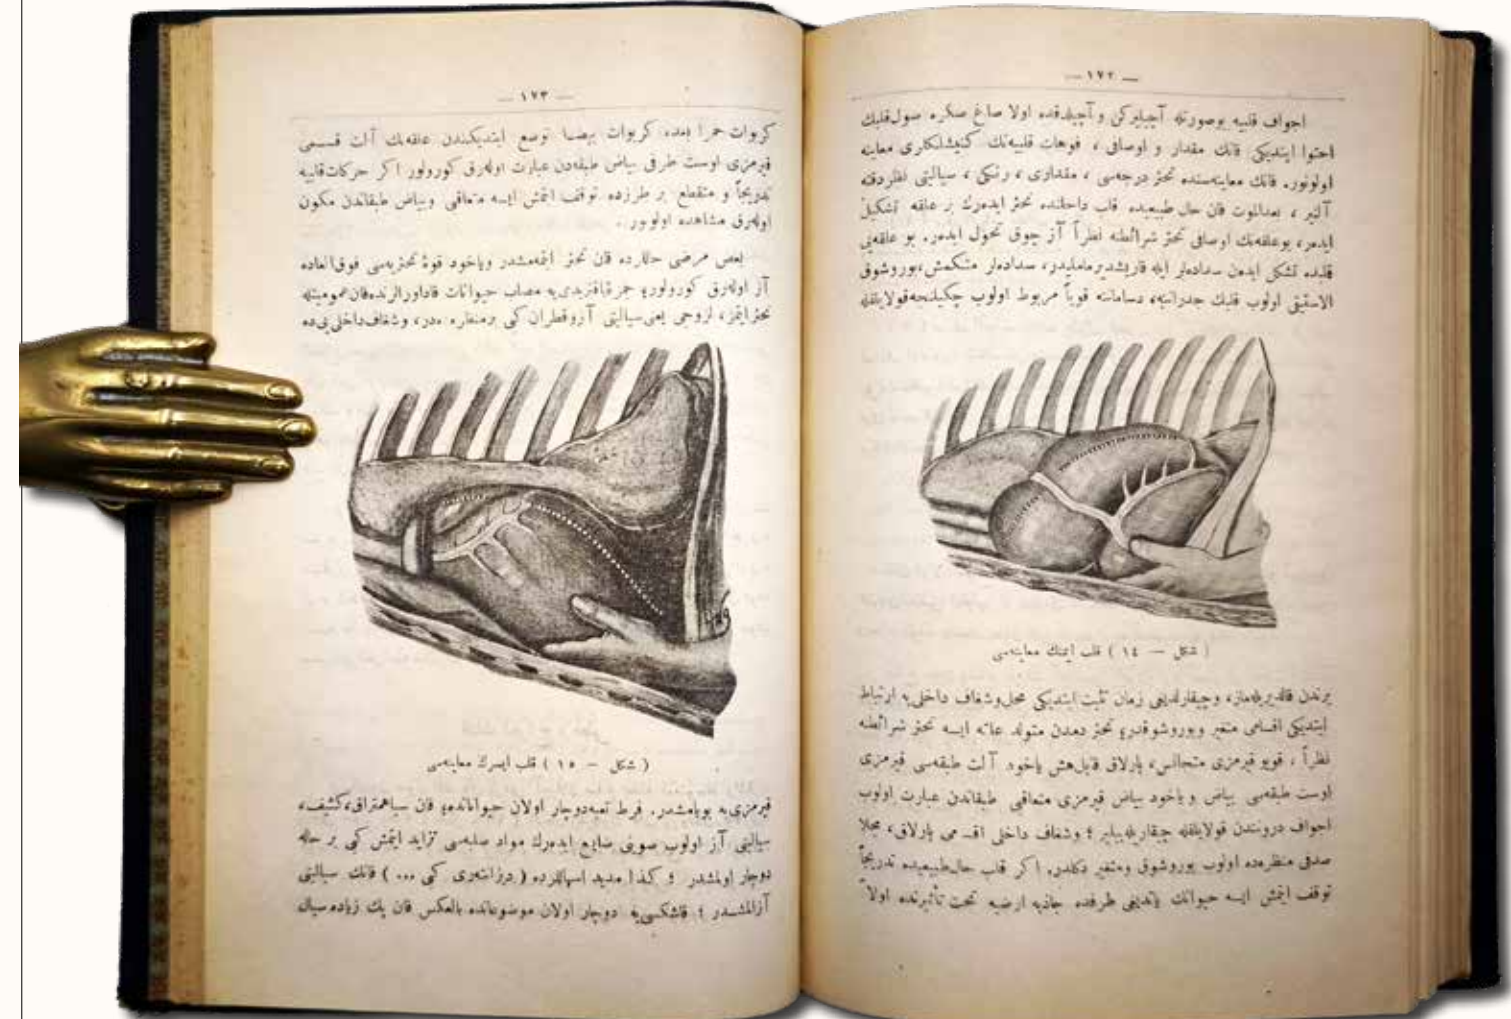 — ١٧٢ —
اجواف قلبیه بوصورتله آچیلیرکن و آچیلدقده اولا صاغ صکره صول قلبك
احتوا ایتدیکی قانك مقدار و اوصافی ، فوهات قلبیه‌نك کنیشلکلری معاینه
اولونور. قانك معاینه‌سنده تخثر درجه‌سی ، مقداری ، رنکی ، سیالیتی نظردقته
آلنیر ، بعدالموت قان حال طبیعیده قلب داخلنده تخثر ایده‌رك بر علقه تشکیل
ایدر، بوعلقه‌نك اوصافی تخثر شرائطنه نظراً آز چوق تحول ایدر. بو علقه‌یی
قلبده تشکل ایدن سداده‌لر ایله قاریشدیرماملیدر، سداده‌لر متکمش، بوروشوق
الاستیقی اولوب قلبك جدرانیله، دساماتنه قویاً مربوط اولوب چکیلنجه قولایلقله
( شکل — ١٤ ) قلب ایمنك معاینه‌سی
یرندن قالدیریله‌ماز، وچیقارلدیغی زمان تثبت ایتدیکی محل وشغاف داخلی‌یه ارتباط
ایتدیکی اقسامی متغیر وبوروشوقدر؛ تخثر دمدن متولد علقه ایسه تخثر شرائطنه
نظراً ، قویو قیرمزی متجانس، پارلاق قایل‌هش یاخود آلت طبقه‌سی قیرمزی
اوست طبقه‌سی بیاض ویاخود بیاض قیرمزی متعاقب طبقاتدن عبارت اولوب
اجواف دروننده قولایلقله چیقاریله‌بیلیر ؛ وشغاف داخلی اقسامی پارلاق، مجلا
صدفی منظره‌ده اولوب بوروشوق ومتغیر دکلدر. اکر قلب حال طبیعیده تدریجاً
توقف ایتمش ایسه حیوانك یاتدیغی طرفده جاذبه ارضیه تحت تأثیرنده اولا
— ١٧٣ —
کریوات حمرا بعده کریوات بیضا توضع ایتدیکندن علقه‌نك آلت قسمی
قیرمزی اوست طرفی بیاض طبقه‌دن عبارت اوله‌رق کورولور اکر حرکات قلبیه
تدریجاً و متقطع بر طرزده توقف ایتمش ایسه متعاقب وبیاض طبقاتدن مکون
اوله‌رق مشاهده اولونور.
بعض مرضی حاللرده قان تخثر ایتمه‌مشدر ویاخود قوۀ تخثریه‌سی فوق‌العاده
آز اوله‌رق کورولور؛ حمرۀ فحمیه‌یه مصاب حیوانات قاداورالرنده قان عمومیتله
تخثر ایتمز، لزوجی یعنی سیالیتی آز وقطران کبی بر منظره‌ده‌در، وشغاف داخلی‌یی ده
( شکل — ١٥ ) قلب ایسرك معاینه‌سی
قیرمزی‌یه بویامشدر. فرط تعبه دوچار اولان حیواناتده؛ قان سیاهمتراق، کثیف،
سیالیتی آز اولوب صوینی ضایع ایده‌رك مواد صلبه‌سی تزاید ایتمش کبی بر حاله
دوچار اولمشدر ؛ کذا مدید اسهاللرده ( دیزانتری کبی ... ) قانك سیالیتی
آزالمشدر ؛ قاشکسی‌یه دوچار اولان موضوعاتده بالعکس قان پك زیاده سیال